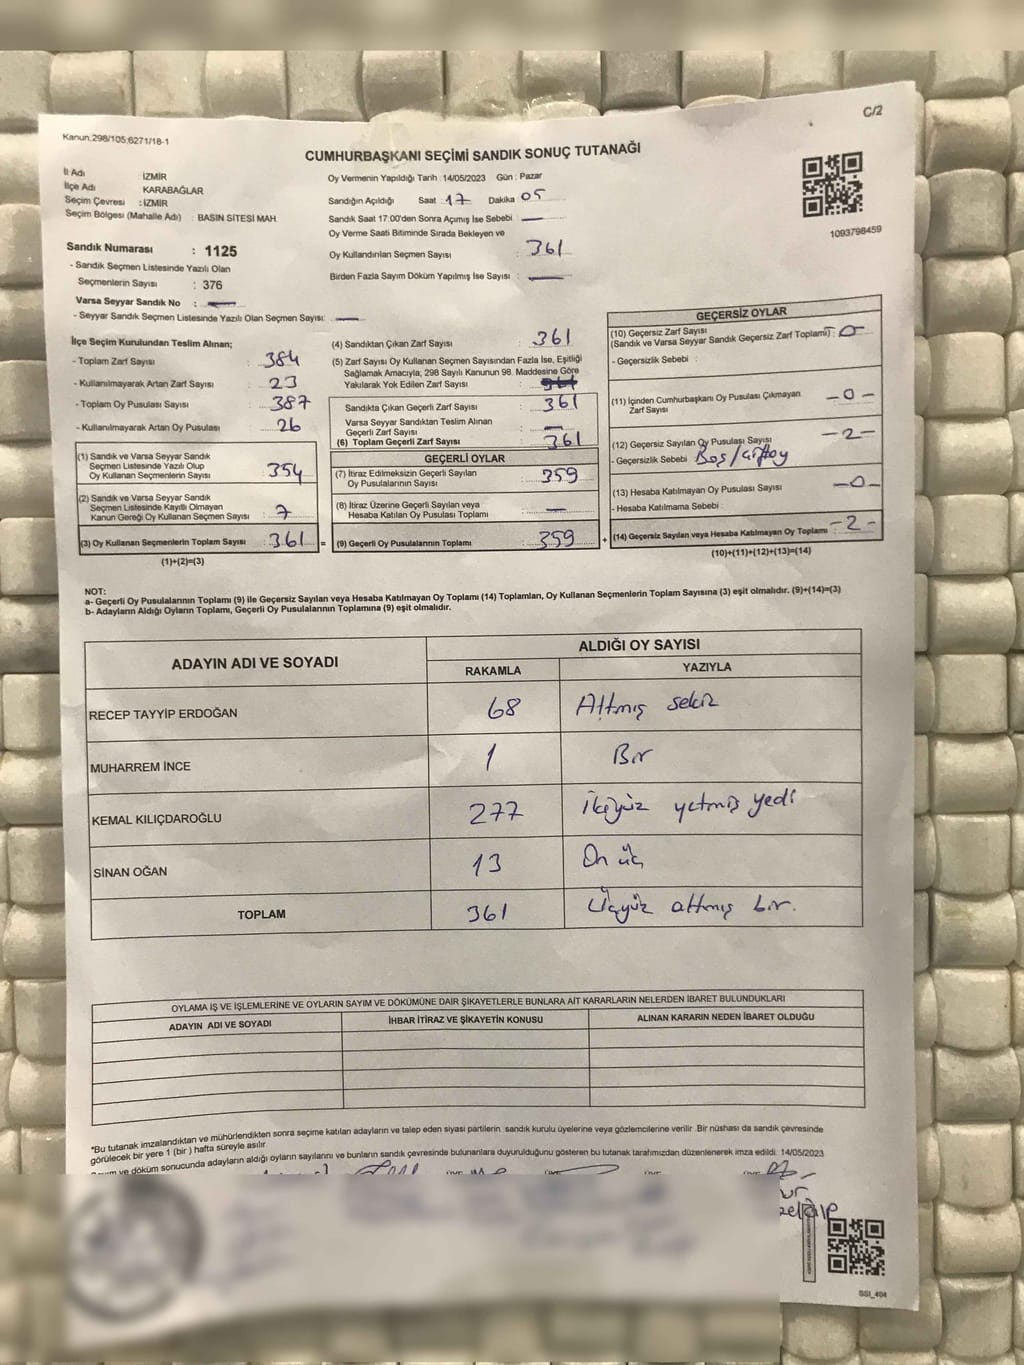 C/2
Kanun:298/105;6271/18-1
CUMHURBAŞKANI SEÇİMİ SANDIK SONUÇ TUTANAĞI
İl Adı : İZMİR
İlçe Adı : KARABAĞLAR
Seçim Çevresi : İZMİR
Seçim Bölgesi (Mahalle Adı) : BASIN SİTESİ MAH.
Oy Vermenin Yapıldığı Tarih :14/05/2023 Gün : Pazar
Sandığın Açıldığı Saat : 17 Dakika : 05
Sandık Saat 17:00'den Sonra Açımış İse Sebebi : —
Oy Verme Saati Bitiminde Sırada Bekleyen ve
Oy Kullandırılan Seçmen Sayısı : 361
Birden Fazla Sayım Döküm Yapılmış İse Sayısı : —
1093798459
Sandık Numarası : 1125
- Sandık Seçmen Listesinde Yazılı Olan
Seçmenlerin Sayısı : 376
Varsa Seyyar Sandık No : —
- Seyyar Sandık Seçmen Listesinde Yazılı Olan Seçmen Sayısı: —
İlçe Seçim Kurulundan Teslim Alınan;
- Toplam Zarf Sayısı : 384
- Kullanılmayarak Artan Zarf Sayısı : 23
- Toplam Oy Pusulası Sayısı : 387
- Kullanılmayarak Artan Oy Pusulası : 26
(1) Sandık ve Varsa Seyyar Sandık
Seçmen Listesinde Yazılı Olup
Oy Kullanan Seçmenlerin Sayısı : 354
(2) Sandık ve Varsa Seyyar Sandık
Seçmen Listesinde Kayıtlı Olmayan
Kanun Gereği Oy Kullanan Seçmen Sayısı : 7
(3) Oy Kullanan Seçmenlerin Toplam Sayısı : 361 =
(1)+(2)=(3)
(4) Sandıktan Çıkan Zarf Sayısı : 361
(5) Zarf Sayısı Oy Kullanan Seçmen Sayısından Fazla İse, Eşitliği
Sağlamak Amacıyla, 298 Sayılı Kanunun 98. Maddesine Göre
Yakılarak Yok Edilen Zarf Sayısı :
Sandıkta Çıkan Geçerli Zarf Sayısı : 361
Varsa Seyyar Sandıktan Teslim Alınan
Geçerli Zarf Sayısı : —
(6) Toplam Geçerli Zarf Sayısı : 361
GEÇERLİ OYLAR
(7) İtiraz Edilmeksizin Geçerli Sayılan
Oy Pusulalarının Sayısı : 359
(8) İtiraz Üzerine Geçerli Sayılan veya
Hesaba Katılan Oy Pusulası Toplamı : —
(9) Geçerli Oy Pusulalarının Toplamı : 359 +
GEÇERSİZ OYLAR
(10) Geçersiz Zarf Sayısı
(Sandık ve Varsa Seyyar Sandık Geçersiz Zarf Toplamı) : 0
- Geçersizlik Sebebi :
(11) İçinden Cumhurbaşkanı Oy Pusulası Çıkmayan
Zarf Sayısı : -0-
(12) Geçersiz Sayılan Oy Pusulası Sayısı : -2-
- Geçersizlik Sebebi : Boş/çift oy
(13) Hesaba Katılmayan Oy Pusulası Sayısı : -0-
- Hesaba Katılmama Sebebi :
(14) Geçersiz Sayılan veya Hesaba Katılmayan Oy Toplamı : -2-
(10)+(11)+(12)+(13)=(14)
NOT:
a- Geçerli Oy Pusulalarının Toplamı (9) ile Geçersiz Sayılan veya Hesaba Katılmayan Oy Toplamı (14) Toplamları, Oy Kullanan Seçmenlerin Toplam Sayısına (3) eşit olmalıdır. (9)+(14)=(3)
b- Adayların Aldığı Oyların Toplamı, Geçerli Oy Pusulalarının Toplamına (9) eşit olmalıdır.
ADAYIN ADI VE SOYADI
ALDIĞI OY SAYISI
RAKAMLA YAZIYLA
RECEP TAYYİP ERDOĞAN 68 Altmış sekiz
MUHARREM İNCE 1 Bir
KEMAL KILIÇDAROĞLU 277 İkiyüz yetmiş yedi
SİNAN OĞAN 13 On üç
TOPLAM 361 Üçyüz altmış bir.
OYLAMA İŞ VE İŞLEMLERİNE VE OYLARIN SAYIM VE DÖKÜMÜNE DAİR ŞİKAYETLERLE BUNLARA AİT KARARLARIN NELERDEN İBARET BULUNDUKLARI
ADAYIN ADI VE SOYADI İHBAR İTİRAZ VE ŞİKAYETİN KONUSU ALINAN KARARIN NEDEN İBARET OLDUĞU
*Bu tutanak imzalandıktan ve mühürlendikten sonra seçime katılan adayların ve talep eden siyasi partilerin sandık kurulu üyelerine veya gözlemcilerine verilir. Bir nüshası da sandık çevresinde
görülecek bir yere 1 (bir ) hafta süreyle asılır.
ve döküm sonucunda adayların aldığı oyların sayılarını ve bunların sandık çevresinde bulunanlara duyurulduğunu gösteren bu tutanak tarafımızdan düzenlenerek imza edildi. 14/05/2023
SSI_404